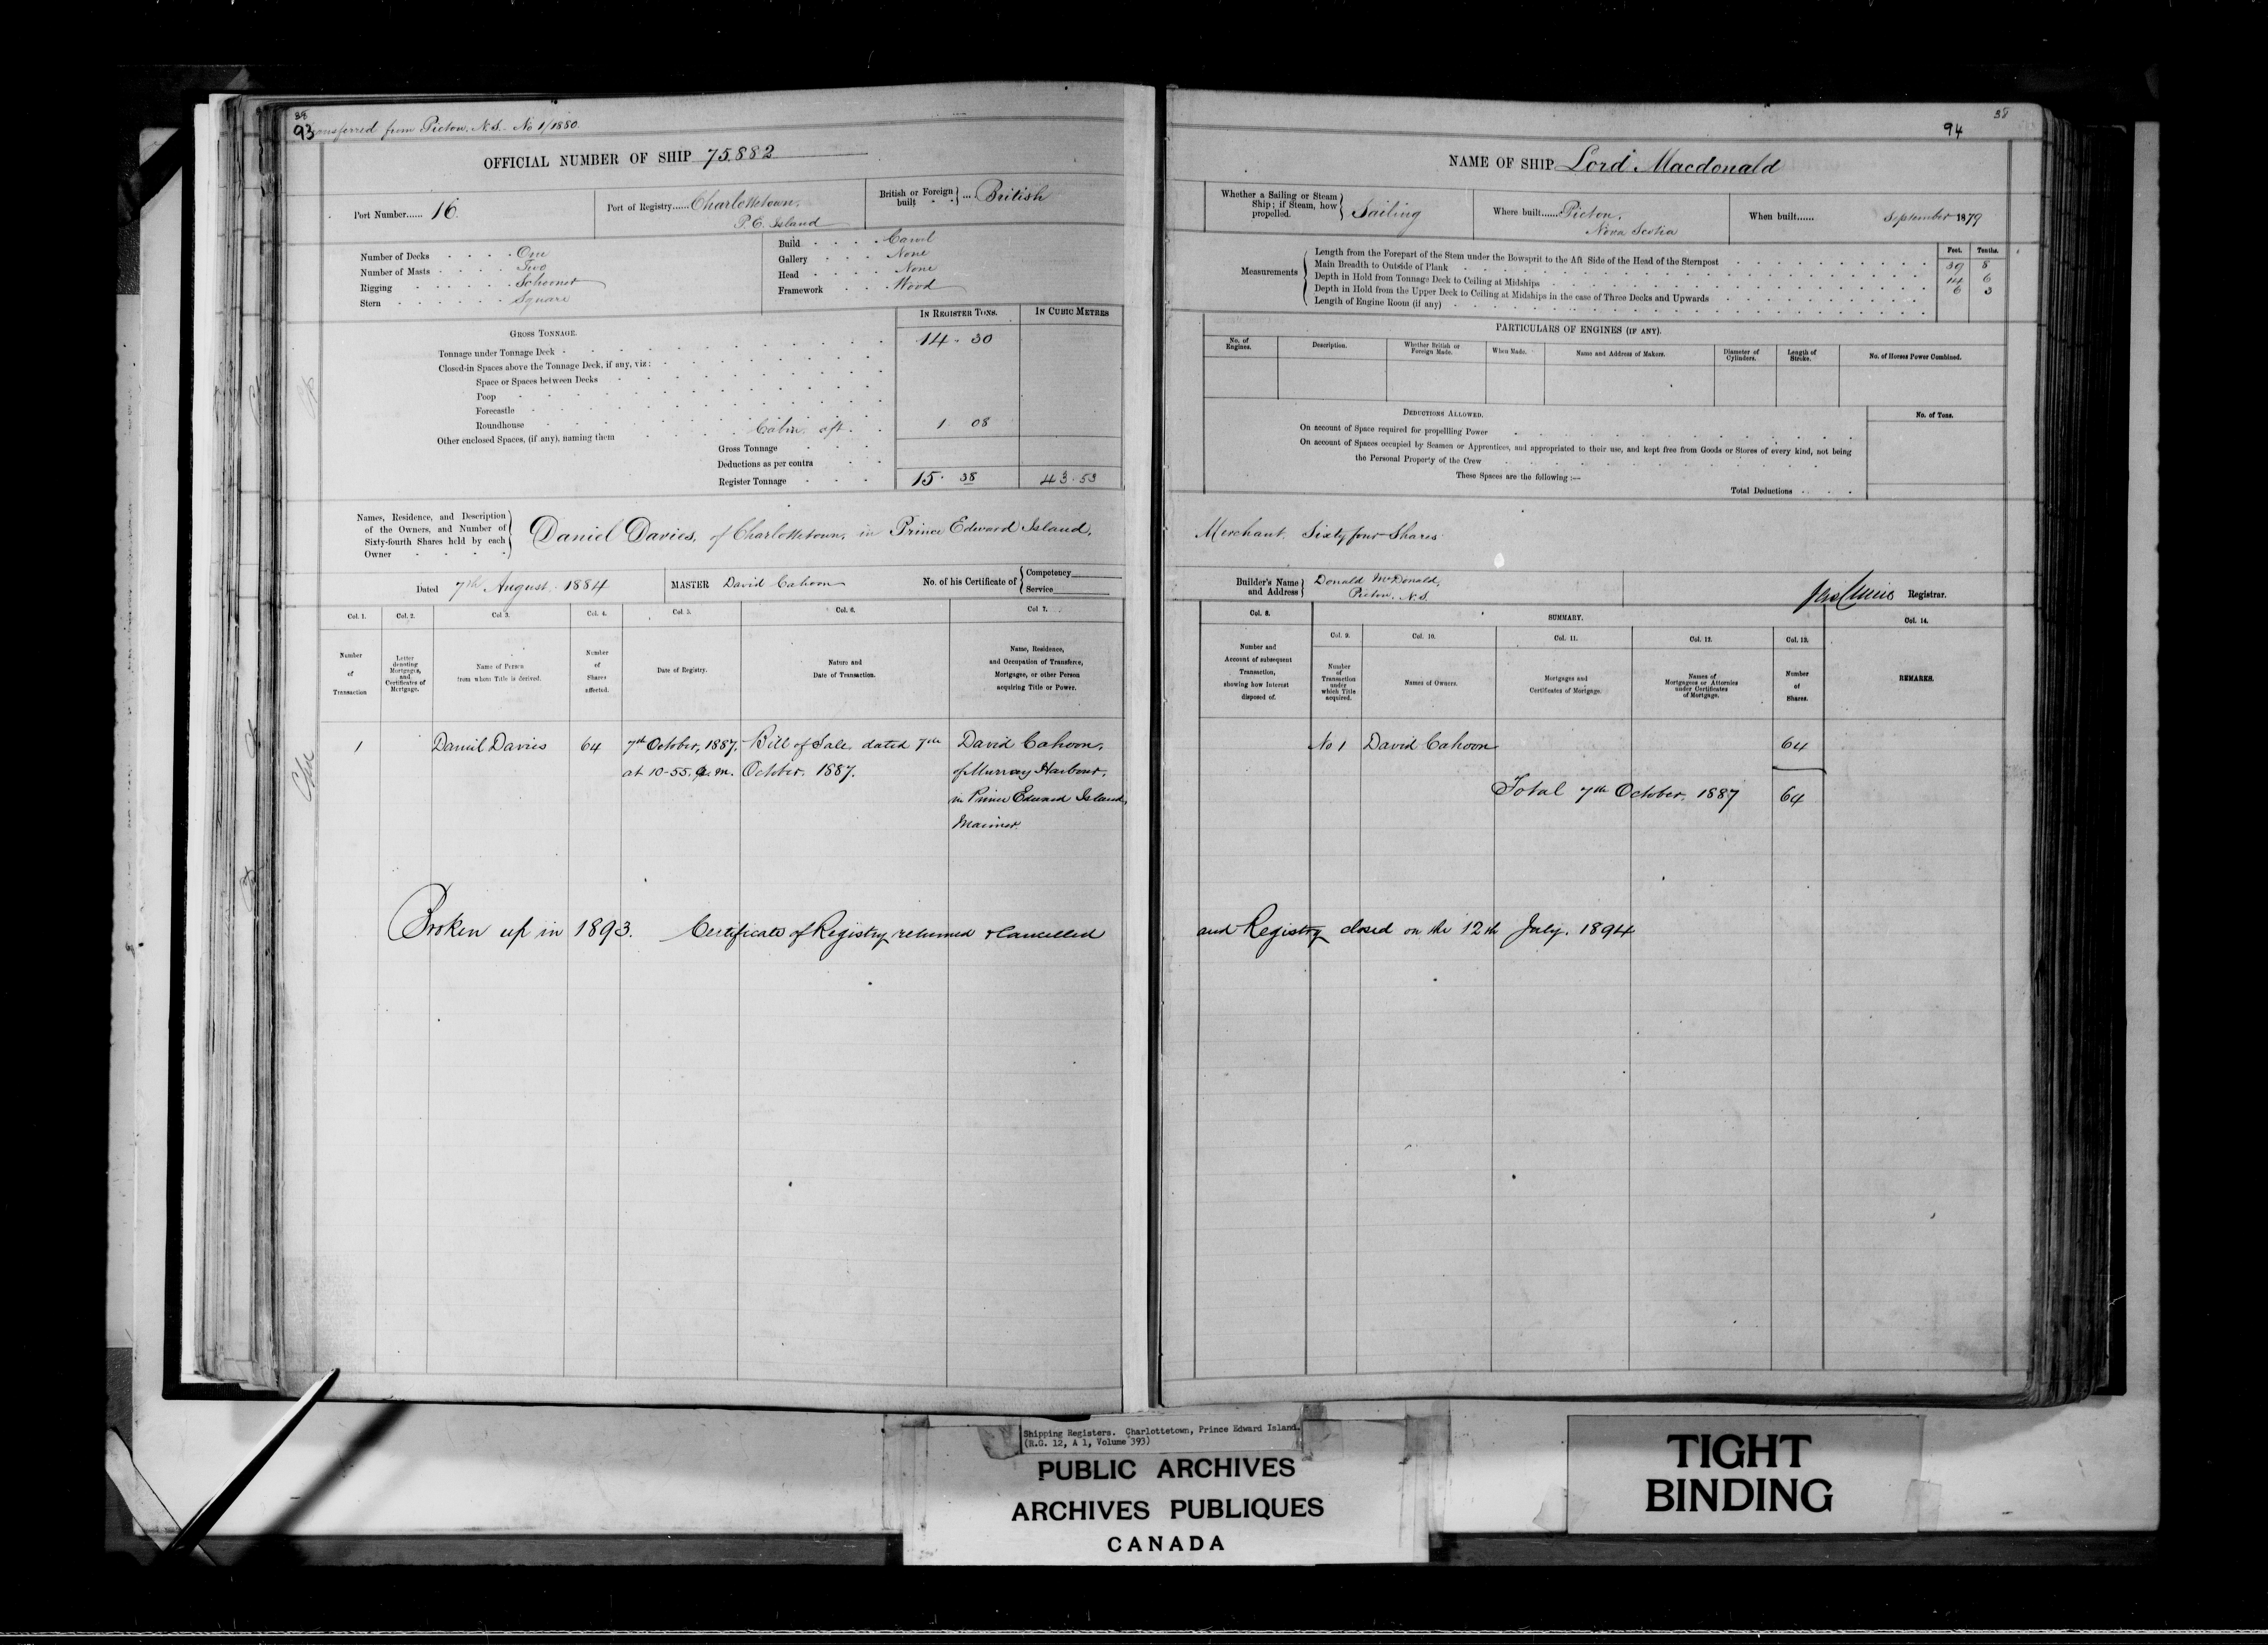 38
93
Transferred from Pictou, N.S. No 1/1880.
OFFICIAL NUMBER OF SHIP 75.882
Port Number...... 16.
Port of Registry...... Charlottetown,
P. E. Island
British or Foreign built ... British
Number of Decks One
Number of Masts Two
Rigging Schooner
Stern Square
Build Carvel
Gallery None
Head None
Framework Wood
IN REGISTER TONS.
IN CUBIC METRES
GROSS TONNAGE.
Tonnage under Tonnage Deck 14 . 30
Closed-in Spaces above the Tonnage Deck, if any, viz:
Space or Spaces between Decks
Poop
Forecastle
Roundhouse
Other enclosed Spaces, (if any), naming them Cabin aft. 1 08
Gross Tonnage
Deductions as per contra
Register Tonnage 15 . 38 43 . 53
Names, Residence, and Description
of the Owners, and Number of
Sixty-fourth Shares held by each
Owner
Daniel Davies, of Charlottetown, in Prince Edward Island,
Dated 7th August. 1884
MASTER David Cahoon
No. of his Certificate of
Competency
Service
Col. 1.
Col. 2.
Col. 3.
Col. 4.
Col. 5.
Col. 6.
Col 7.
Number
of
Transaction
Letter
denoting
Mortgages,
and
Certificates of
Mortgage.
Name of Person
from whom Title is derived.
Number
of
Shares
affected.
Date of Registry.
Nature and
Date of Transaction.
Name, Residence,
and Occupation of Transferee,
Mortgagee, or other Person
acquiring Title or Power.
1 Daniel Davies 64 7th October, 1887. Bill of Sale, dated 7th David Cahoon,
at 10-55. a.m. October, 1887. of Murray Harbour,
in Prince Edward Island,
Mariner.
Broken up in 1893. Certificate of Registry returned & Cancelled
38
94
NAME OF SHIP Lord Macdonald
Whether a Sailing or Steam
Ship; if Steam, how
propelled.
Sailing
Where built...... Pictou,
Nova Scotia
When built...... September 1879
Feet. Tenths.
Measurements
Length from the Forepart of the Stem under the Bowsprit to the Aft Side of the Head of the Sternpost 39 8
Main Breadth to Outside of Plank 14 6
Depth in Hold from Tonnage Deck to Ceiling at Midships 6 3
Depth in Hold from the Upper Deck to Ceiling at Midships in the case of Three Decks and Upwards
Length of Engine Room (if any)
PARTICULARS OF ENGINES (IF ANY).
No. of
Engines.
Description.
Whether British or
Foreign Made.
When Made.
Name and Address of Makers.
Diameter of
Cylinders.
Length of
Stroke.
No. of Horses Power Combined.
DEDUCTIONS ALLOWED.
No. of Tons.
On account of Space required for propelling Power
On account of Spaces occupied by Seamen or Apprentices, and appropriated to their use, and kept free from Goods or Stores of every kind, not being
the Personal Property of the Crew
These Spaces are the following:—
Total Deductions
Merchant. Sixty four Shares.
Builder's Name
and Address
Donald McDonald,
Pictou, N.S.
Registrar.
Col. 8.
SUMMARY.
Col. 14.
Col. 9.
Col. 10.
Col. 11.
Col. 12.
Col. 13.
Number and
Account of subsequent
Transaction,
showing how Interest
disposed of.
Number
of
Transaction
under
which Title
acquired.
Names of Owners.
Mortgages and
Certificates of Mortgage.
Names of
Mortgagees or Attornies
under Certificates
of Mortgage.
Number
of
Shares.
REMARKS.
No 1 David Cahoon 64
Total 7th October, 1887 64
and Registry closed on the 12th July. 1894
Shipping Registers. Charlottetown, Prince Edward Island.
(R.G. 12, A 1, Volume 393)
PUBLIC ARCHIVES
ARCHIVES PUBLIQUES
CANADA
TIGHT
BINDING